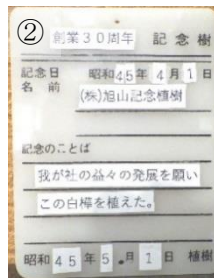 ②
創業30周年 記念樹
記念日 昭和45年4月1日
名前 (株)旭山記念植樹
記念のことば
我が社の益々の発展を願い
この白樺を植えた。
昭和45年5月1日 植樹